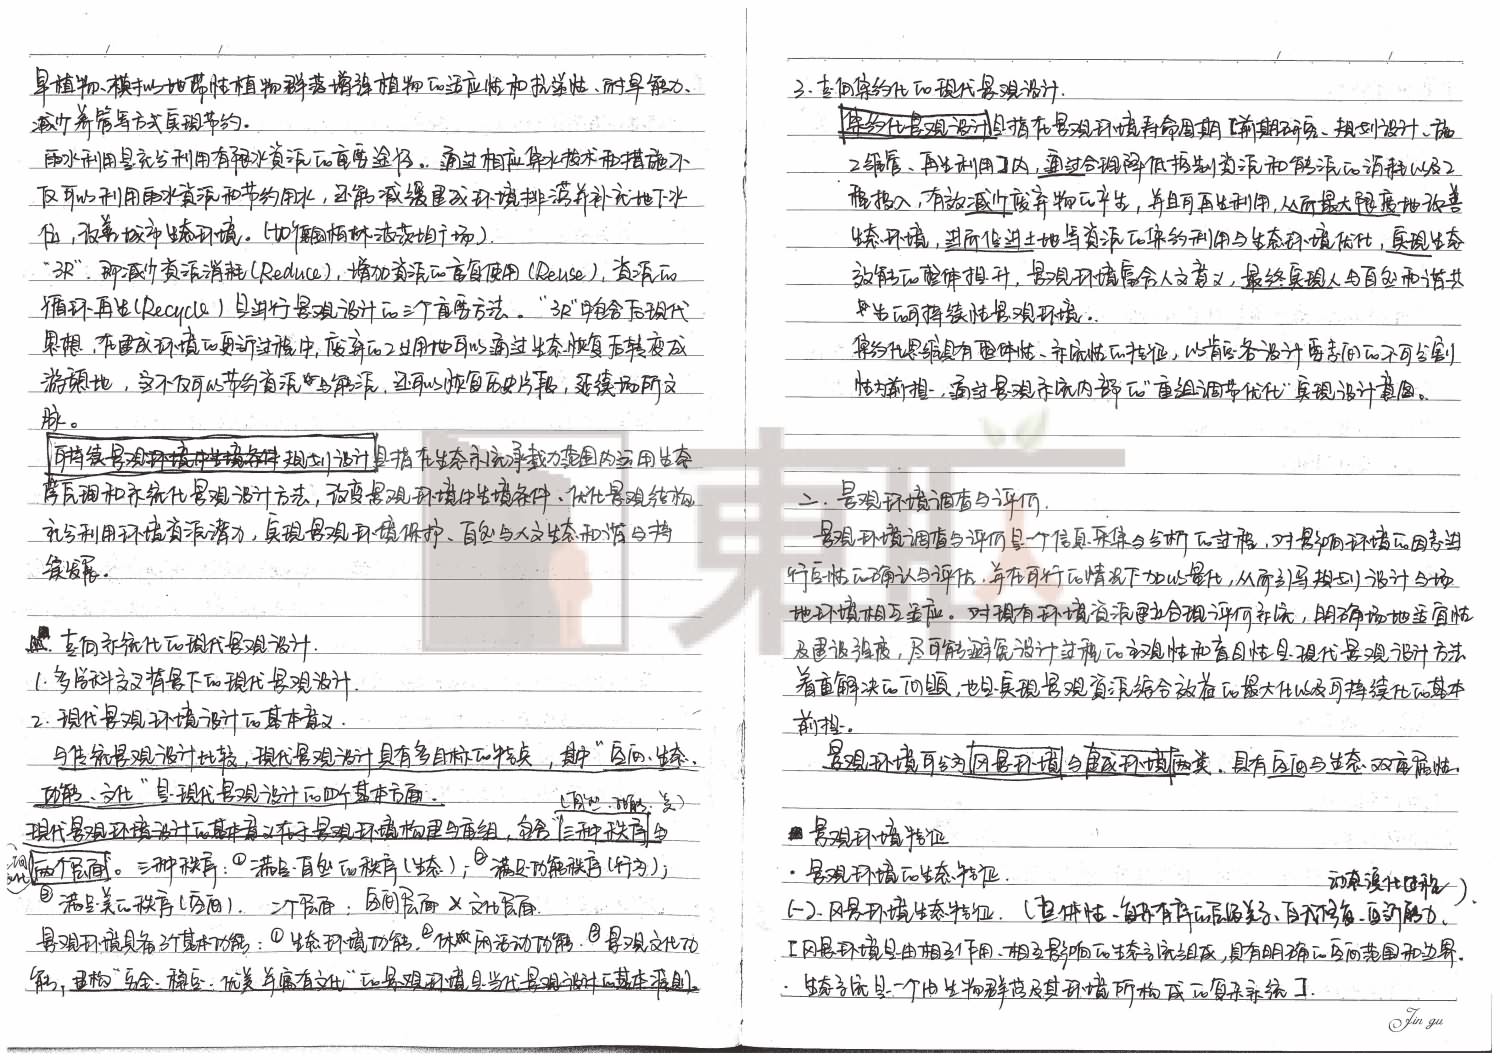 旱植物、模拟地带性植物群落增强植物的适应性和抗逆性、耐旱能力、
减少养管等方式实现节约。
雨水利用是充分利用有限水资源的重要途径。通过相应集水技术和措施不
仅可以利用雨水资源和节约用水，还能减缓建成环境排涝并补充地下水
位，改善城市生态环境。(如德国柏林波茨坦广场)
"3R"，即减少资源消耗(Reduce)，增加资源的重复使用(Reuse)，资源的
循环再生(Recycle)是进行景观设计的三个重要方法。"3R"中包含后现代
思想，在建成环境的更新过程中，废弃的工业用地可以通过生态恢复后转变成
游憩地，这不仅可以节约资源与能源，还可以恢复历史片段，延续场所文
脉。
可持续景观环境规划设计是指在生态系统承载力范围内运用生态
学原理和系统化景观设计方法，改变景观环境中生境条件、优化景观结构
充分利用环境资源潜力，实现景观环境保护、自然与人文生态和谐与持
续发展。
走向系统化的现代景观设计.
1. 多学科交叉背景下的现代景观设计.
2. 现代景观环境设计的基本意义.
与传统景观设计比较，现代景观设计具有多目标的特点，其中"空间、生态、
功能、文化"是现代景观设计的四个基本方面.
现代景观环境设计的基本意义在于景观环境构建与重组，包含三种秩序与
两个层面。三种秩序：①满足自然的秩序(生态)；②满足功能秩序(行为)；
③满足美的秩序(空间). 二个层面：空间层面 文化层面.
景观环境具备3个基本功能：①生态环境功能. ②休闲活动功能. ③景观文化功
能，建构"安全、稳定、优美并富有文化"的景观环境是当代景观设计的基本准则.
3. 走向集约化的现代景观设计.
集约化景观设计是指在景观环境寿命周期[前期研究、规划设计、施
工管、再生利用]内，通过合理降低控制资源和能源的消耗以及工
程投入，有效减少废弃物的产生，并且可再生利用，从而最大限度地改善
生态环境，进而促进土地等资源的集约利用与生态环境优化，实现生态
效能的整体提升，景观环境富含人文意义，最终实现人与自然和谐共
生的可持续性景观环境。
集约化具有整体性、系统性的特征，以肯定各设计要素间的不可分割
性为前提，通过景观系统内部的"重组调节优化"实现设计意图。
二、景观环境调查与评价.
景观环境调查与评价是一个信息采集与分析的过程，对影响环境的因素进
行定性的确认与评估，并在可行的情况下加以量化，从而引导规划设计与场
地环境相互适应。对现有环境资源建立合理评价系统，明确场地适宜性
及建设强度，尽可能避免设计过程的主观性和盲目性是现代景观设计方法
着重解决的问题，也是实现景观资源综合效益的最大化以及可持续化的基本
前提。
景观环境可分为风景环境与建成环境两类。具有空间与生态双重属性.
景观环境特征
· 景观环境的生态特征.
动态演化过程).
(一). 风景环境生态特征.
[风景环境是由相互作用、相互影响的生态系统组成，具有明确的空间范围和边界.
· 生态系统是一个由生物群落及其环境所构成的复杂系统].
Jin gu
東